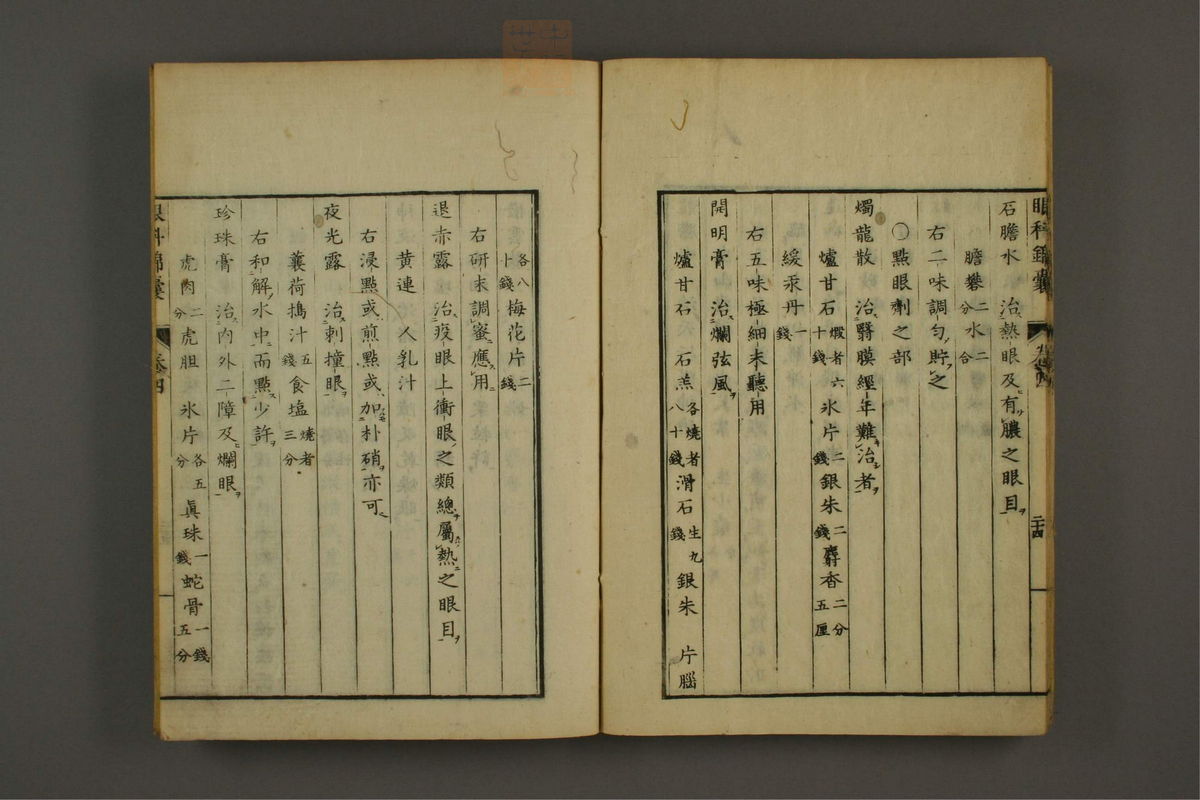 眼科錦囊 卷四 二十四
石膽水 治熱眼及有膿之眼目
膽礬二分水二合
右二味調勻貯之
〇點眼劑之部
燭龍散 治翳膜經年難治者
爐甘石煅者六十錢氷片二錢銀朱二錢麝香二分五厘
綏汞丹一錢
右五味極細末聽用
開明膏 治爛弦風
爐甘石 石羔各燒者八十錢滑石生九錢銀朱 片腦
各八十錢梅花片二錢
右研末調蜜應用
退赤露 治疫眼上衝眼之類總屬熱之眼目
黃連 人乳汁
右浸點或煎點或加朴硝亦可
夜光露 治刺撞眼
蘘荷搗汁五錢食塩燒者三分
右和解水中而點少許
珍珠膏 治內外二障及爛眼
虎肉二分虎胆 氷片各五分眞珠一錢蛇骨一錢五分
眼科錦囊 卷四